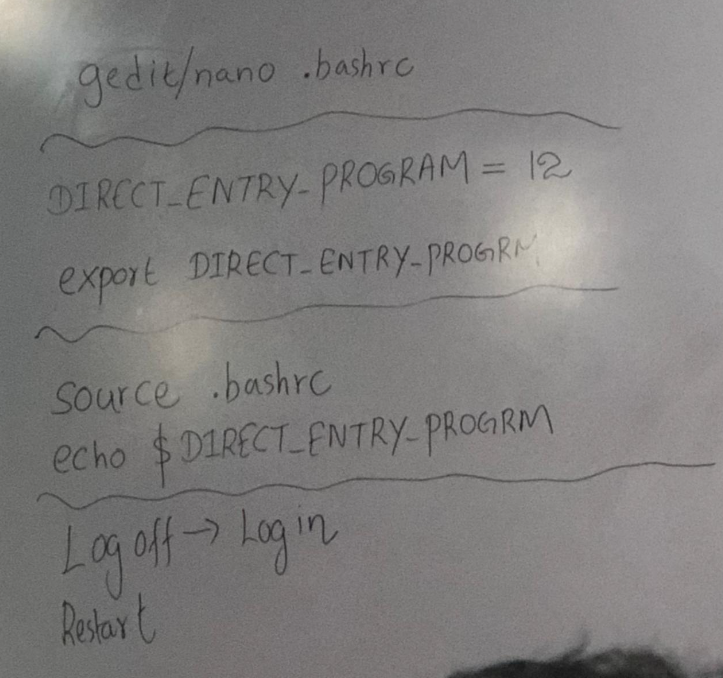 gedit/nano .bashrc
DIRECT_ENTRY_PROGRAM = 12
export DIRECT_ENTRY_PROGRM
source .bashrc
echo $DIRECT_ENTRY_PROGRM
Log off → Log in
Restart